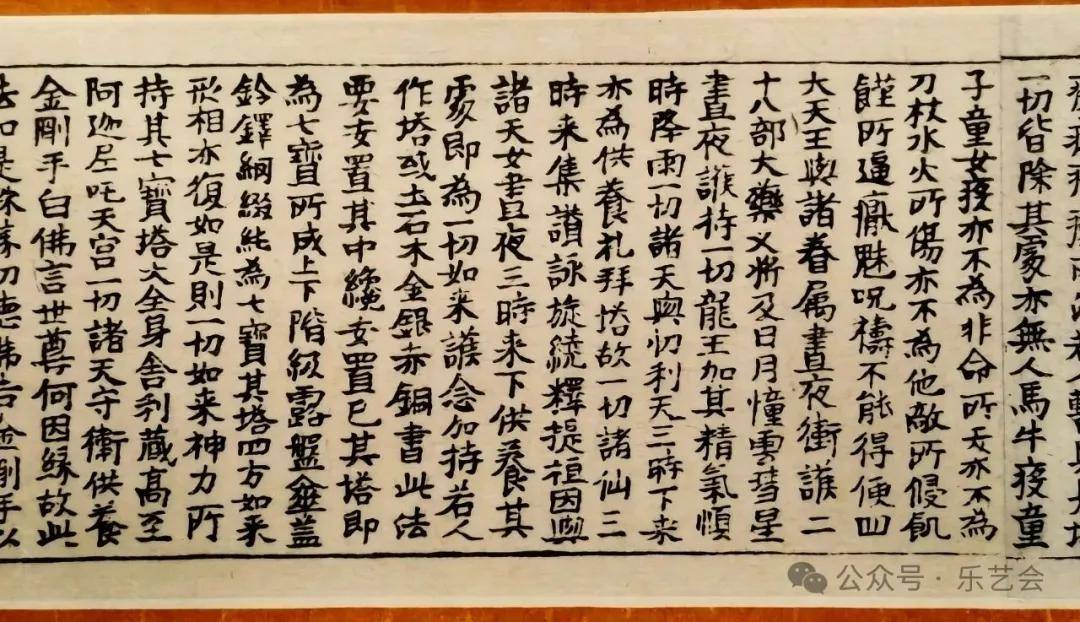 一切皆除其處亦無人馬牛疫童
子童女疫亦不為非命所夭亦不為
刀杖水火所傷亦不為他敵所侵飢
饉所逼厭魅呪禱不能得便四
大天王與諸眷属晝夜衛護二
十八部大藥叉将及日月憧雲彗星
晝夜護持一切龍王加其精氣順
時降雨一切諸天與忉利天三時下来
亦為供養礼拜塔故一切諸仙三
時来集讃詠旋繞釋提桓因與
諸天女晝夜三時来下供養其
處即為一切如来護念加持若人
作塔或土石木金銀赤銅書此法
要安置其中纔安置已其塔即
為七寶所成上下階級露盤傘盖
鈴鐸網綴純為七寶其塔四方如来
形相亦復如是則一切如来神力所
持其七寶塔大全身舍利藏高至
阿迦尼吒天宫一切諸天守衛供養
金剛手白佛言世尊何因緣故此
法如是殊勝功德佛告金剛手以
公众号·乐艺会